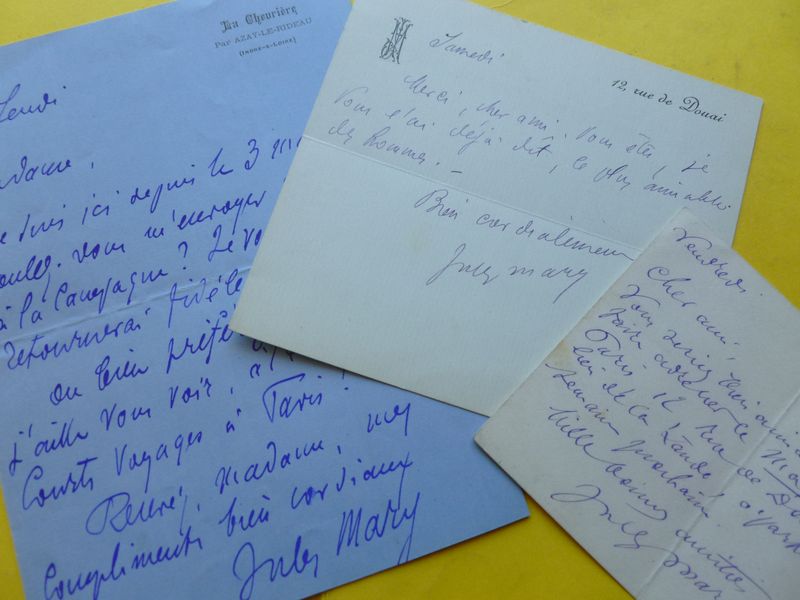 La Chevrière
Par AZAY-LE-RIDEAU
(INDRE-&-LOIRE)
Jeudi
Madame,
Je suis ici depuis le 3 m
voulez vous m'envoyer
à la Campagne ? Je vo
retournerai fidèle
ou bien préfé
j'aille vous voir, à
Courts voyages à Paris ?
Recevez, madame, mes
Compliments bien cordiaux
Jules Mary
Samedi
12, rue de Douai
Merci, cher ami. Vous êtes, je
vous l'ai déjà dit, le plus aimable
des hommes. –
Bien cordialement
Jules Mary
Vendredi
Cher ami,
Vous seriez bien aim
faire adresser le
Paris 12 rue de Do
lieu de la Lande, à part
semaine prochaine.
Mille bonnes amitiés
Jules Mar